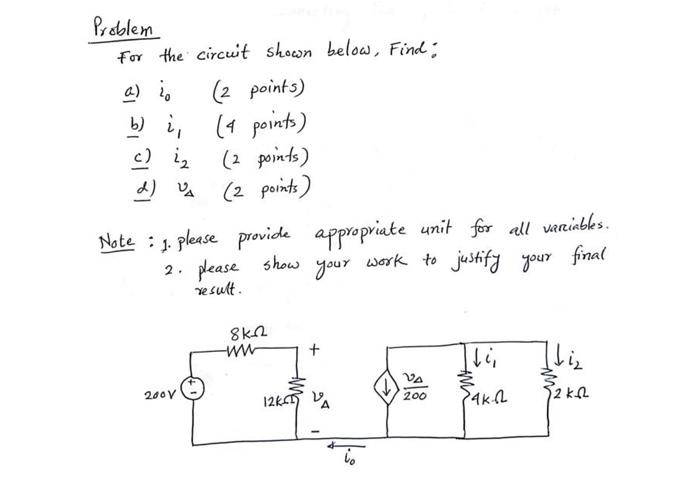 Problem
For the circuit shown below, Find:
a) i₀ (2 points)
b) i₁ (4 points)
c) i₂ (2 points)
d) v_Δ (2 points)
Note : 1. please provide appropriate unit for all variables.
2. please show your work to justify your final
result.
8kΩ
+
↓i₁
↓i₂
200V
+
-
12kΩ
v_Δ
v_Δ/200
4kΩ
2kΩ
-
i₀